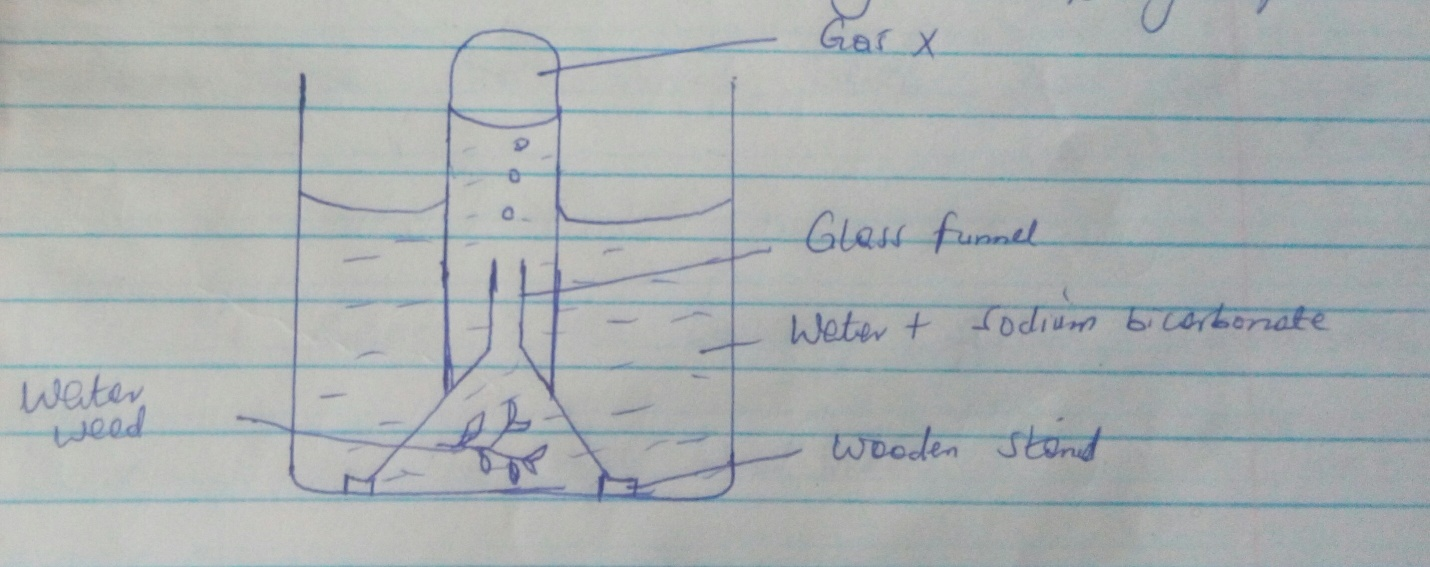 Gas X
Glass funnel
Water + Sodium bicarbonate
Water
weed
Wooden stand